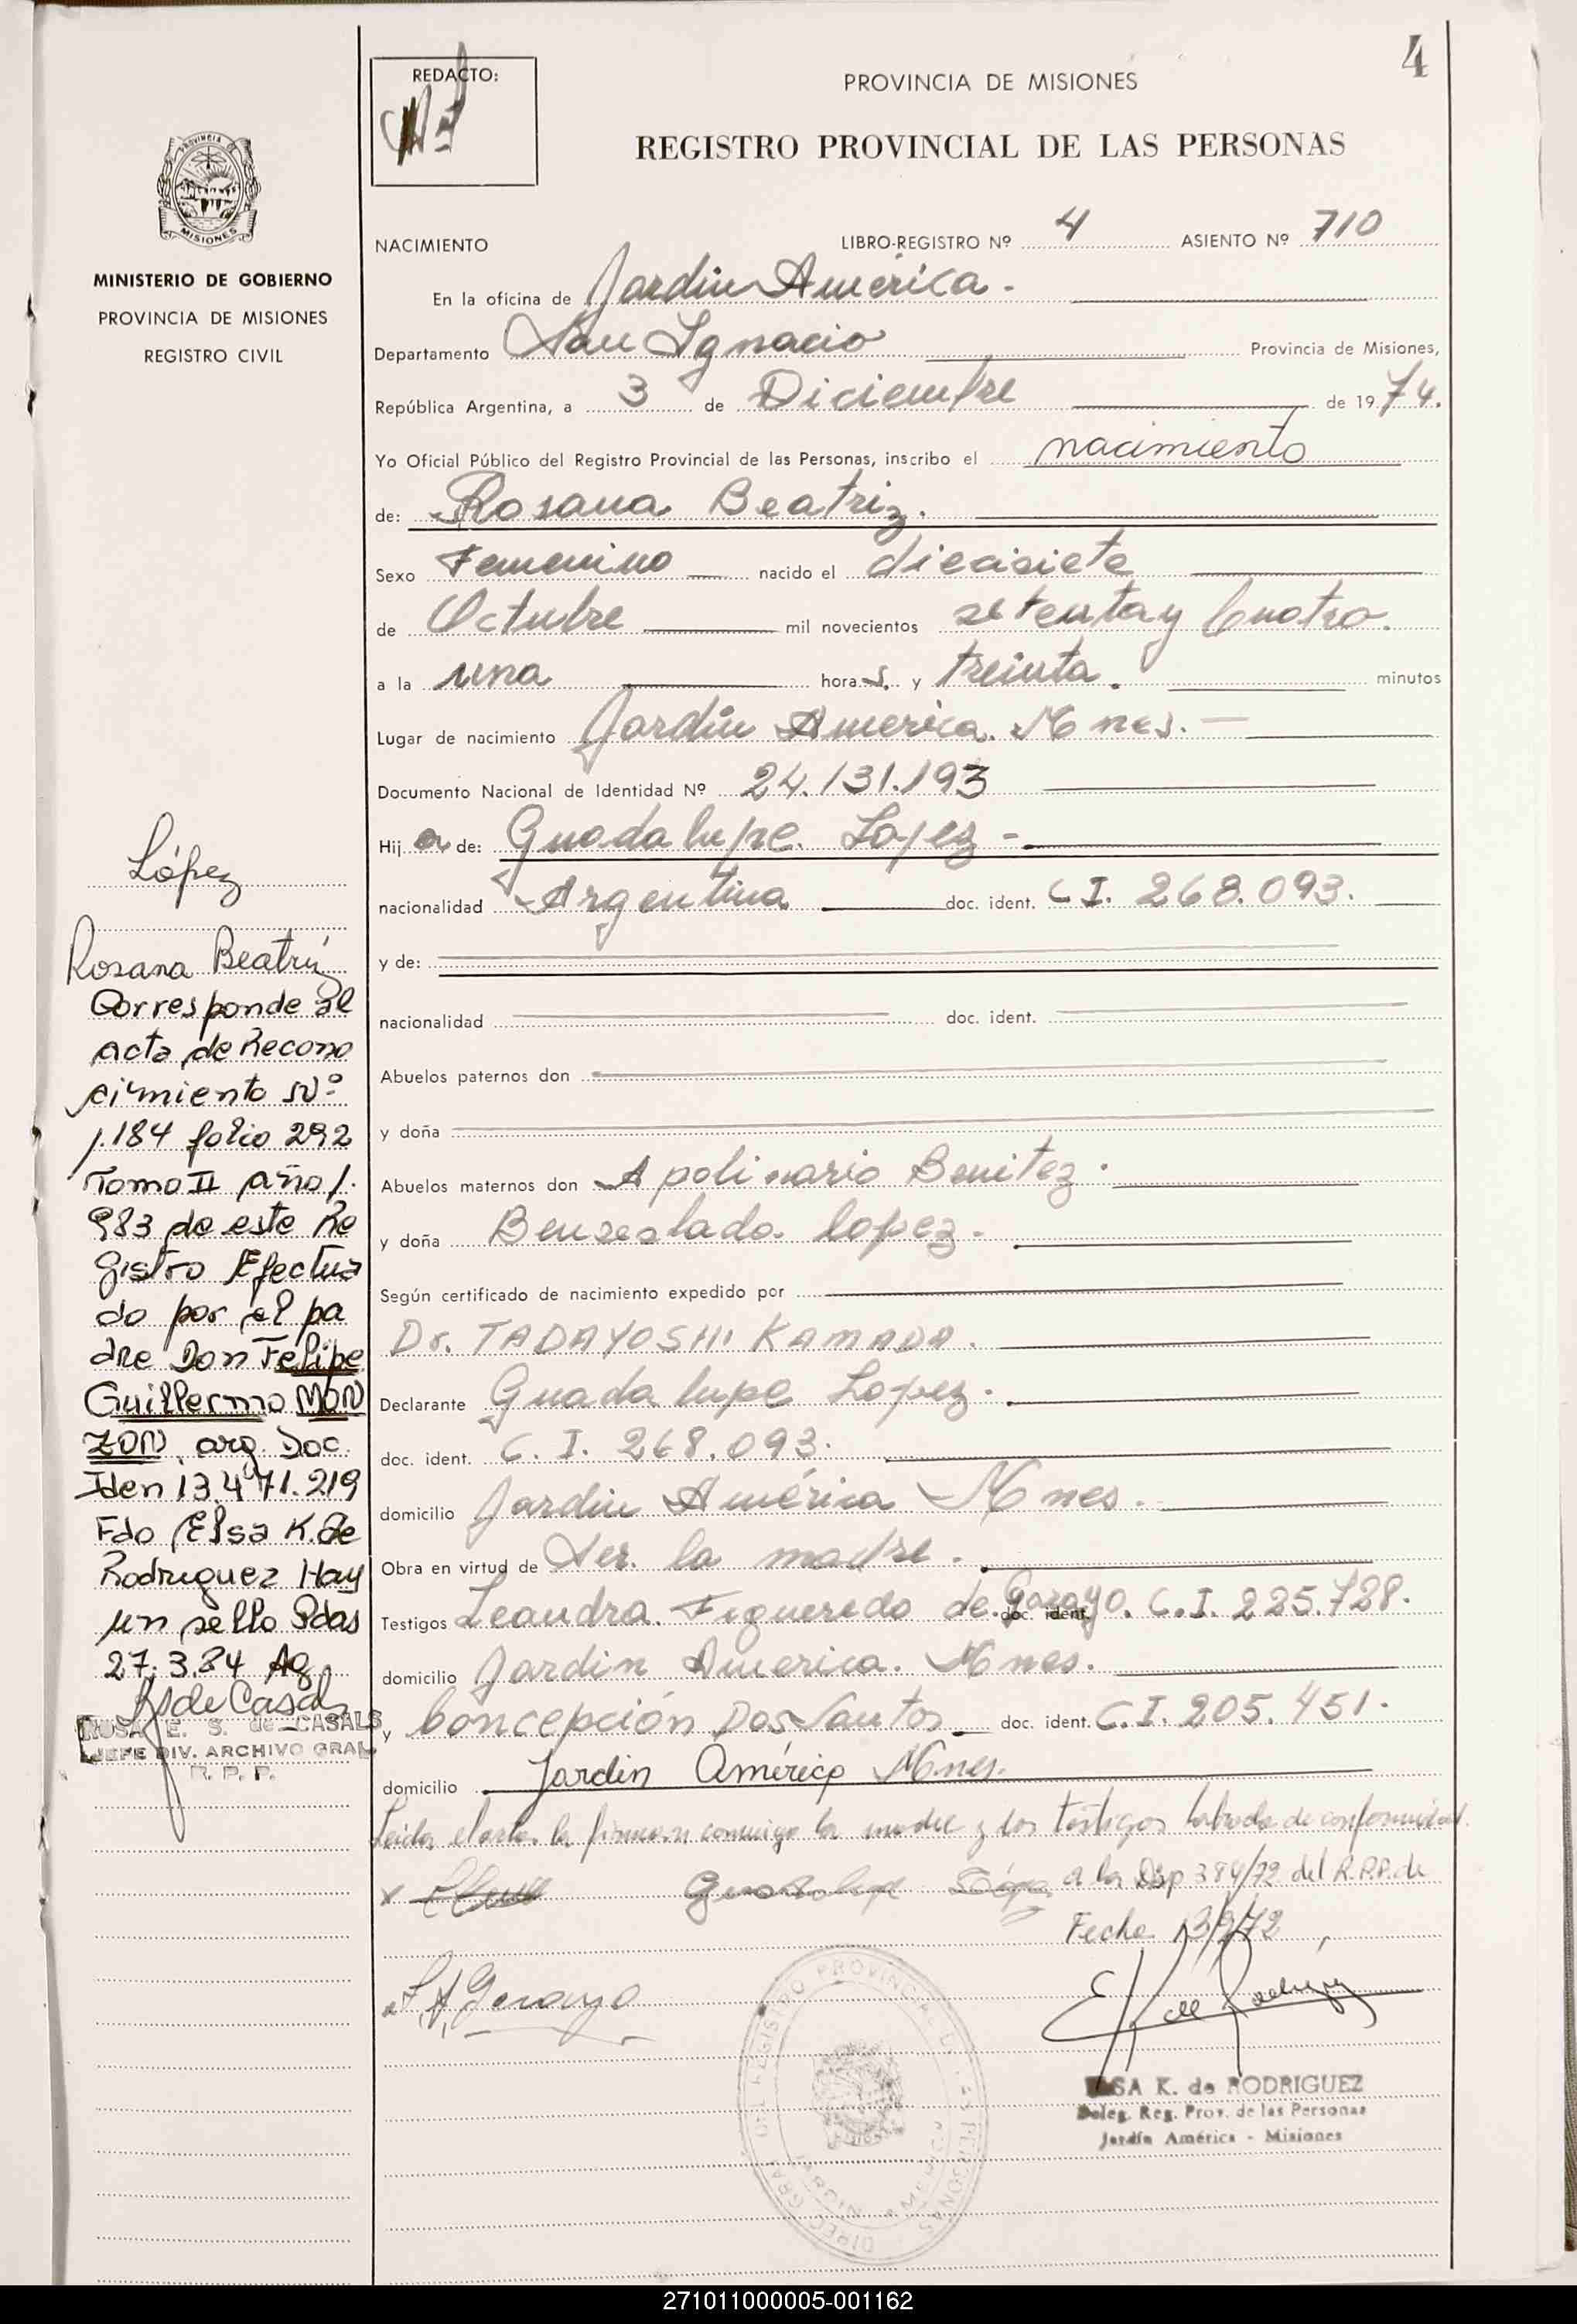 4
REDACTO:
PROVINCIA DE MISIONES
REGISTRO PROVINCIAL DE LAS PERSONAS
PROVINCIA DE
MISIONES
MINISTERIO DE GOBIERNO
PROVINCIA DE MISIONES
REGISTRO CIVIL
NACIMIENTO LIBRO-REGISTRO Nº 4 ASIENTO Nº 710
En la oficina de Jardin América.
Departamento San Ignacio Provincia de Misiones,
República Argentina, a 3 de Diciembre de 1974.
Yo Oficial Público del Registro Provincial de las Personas, inscribo el nacimiento
de: Rosana Beatriz.
Sexo Femenino nacido el diecisiete
de Octubre mil novecientos setenta y Cuatro.
a la una hora s. y treinta. minutos
Lugar de nacimiento Jardin America. Mnes.
Documento Nacional de Identidad Nº 24.131.193
Hij a de: Guadalupe. Lopez -
nacionalidad Argentina doc. ident. C I. 268.093.
y de:
nacionalidad doc. ident.
Abuelos paternos don
y doña
Abuelos maternos don Apolinario Benitez.
y doña Benseslada. lopez.
Según certificado de nacimiento expedido por
Dr. TADAYOSHI KAMADA.
Declarante Guadalupe Lopez.
doc. ident. C. I. 268.093.
domicilio Jardin América Mnes.
Obra en virtud de Ser. la madre.
Testigos Leandra. Figueredo de Garayo. doc. ident. C.I. 225.728.
domicilio Jardin America. Mnes.
y Concepción Dos Santos doc. ident. C.I. 205.451.
domicilio Jardin América Mnes.
Leída el acta. la firman conmigo la madre y los testigos labrada de conformidad
a la Dsp 384/72 del R.P.P. de
Guadalupe López
Fecha 13/9/72
Garayo
López
Rosana Beatriz
Corresponde al
acta de Recono
cimiento Nº
1.184 folio 292
Tomo II año 1.
983 de este Re
gistro Efectua
do por el pa
dre Don Felipe
Guillermo MON
ZON, arg. Doc.
Iden 13.471.219
Fdo Elsa K. de
Rodriguez Hay
un sello Pdas
27.3.84 Ag
RdeCasals
ROSA E. S. de CASALS
JEFE DIV. ARCHIVO GRAL
R. P. P.
REGISTRO PROVINCIAL DE LAS PERSONAS
JARDIN AMERICA
ELSA K. de RODRIGUEZ
Deleg. Reg. Prov. de las Personas
Jardín América - Misiones
271011000005-001162